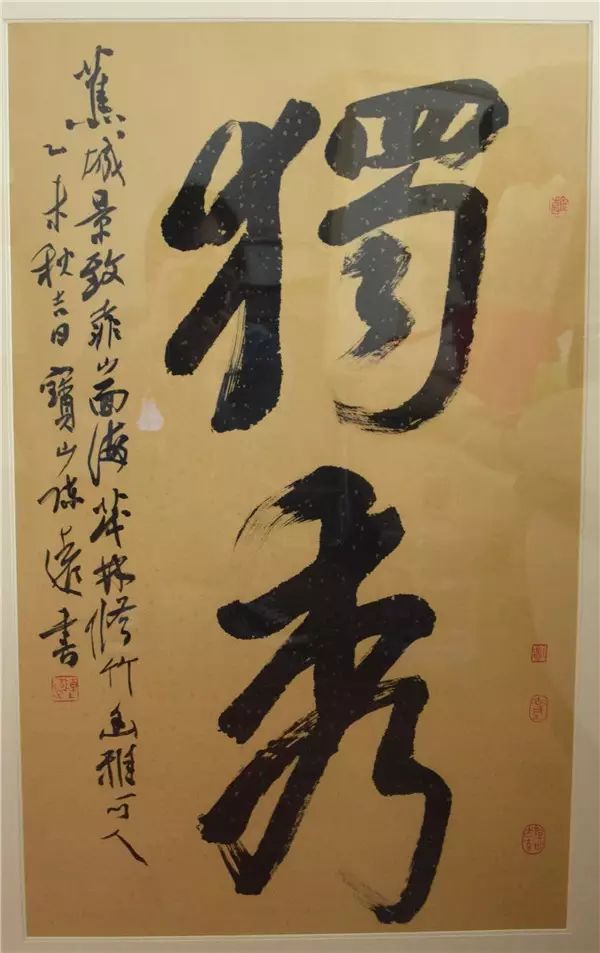 獨秀
蕉城景致靠山面海茂林修竹幽雅可人
乙未秋吉日寶山陳遠書